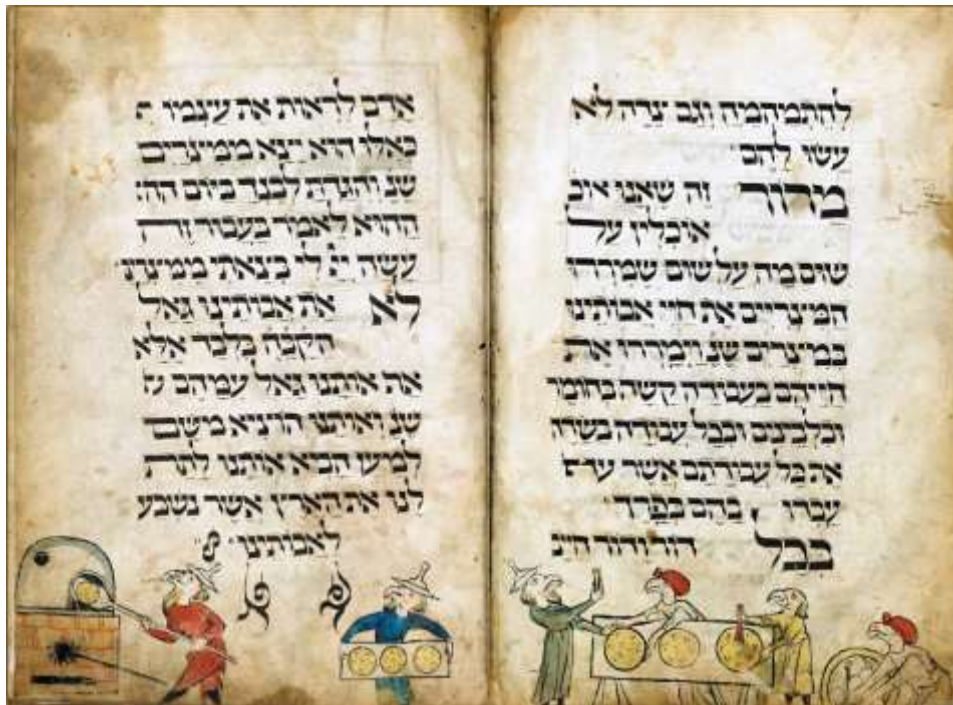 להתמהמה וגם צדה לא
עשו להם
מרור זה שאנו אוכ
אוכלין על
שום מה על שום שמררו
המצריים את חיי אבותינו
במצרים שנ וימררו את
חייהם בעבודה קשה בחומר
ובלבינים ובכל עבודה בשדה
את כל עבודתם אשר
עבדו בהם בפרך
בכל דור ודור חייב
אדם לראות את עצמו
כאלו הוא יצא ממצרים
שנ והגדת לבנך ביום הה
ההוא לאמר בעבור זה
עשה ייי לי בצאתי ממצרי
לא את אבותינו גאל
הקבה בלבד אלא
את אותנו גאל עמהם
שנ ואותנו הוציא משם
למען הביא אותנו לתת
לנו את הארץ אשר נשבע
לאבותינו